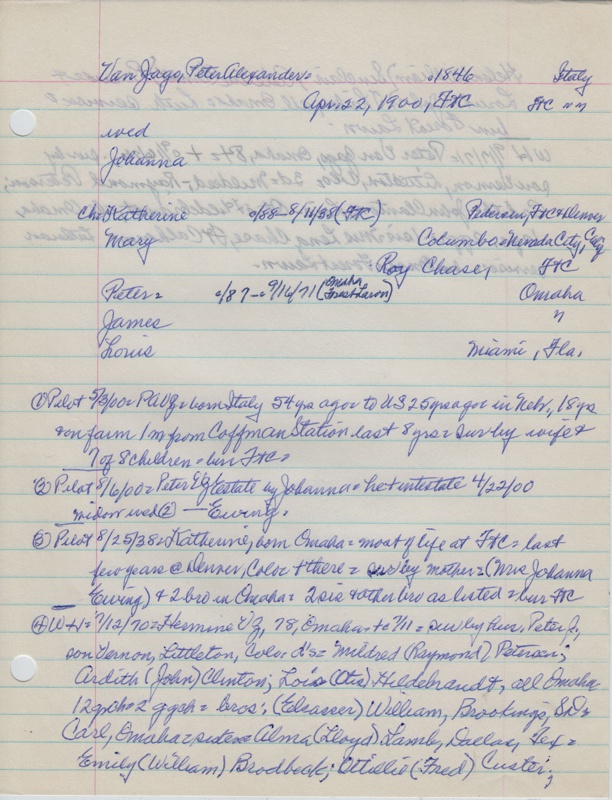 Van Jago, Peter Alexander= c1846 Italy
Apr. 22, 1900, FtC FtC " "
wed
Johanna
Ch: Katherine c/88 - 8/11/38 (FtC) Petersen, FtC + Denver
Mary Columbo = Nevada City,
Roy Chase, FtC
Peter = c/87 - 9/16/71 (Omaha Forest Lawn) Omaha
James "
Louis Miami, Fla.
① Pilot 5/3/00 = born Italy 54 yrs ago = to US 25 yrs ago = in Nebr, 18 yrs
+ on farm 1 m from Coffman Station last 8 yrs = sur by wife +
7 of 8 children = bur FtC =
② Pilot 8/6/00 = Peter estate by Johanna = he + intestate 4/22/00
widow wed ② — Ewing =
③ Pilot 8/25/38 = Katherine, born Omaha = most of life at FtC = last
few years @ Denver, Color + there = sur by mother = (Mrs Johanna
Ewing) + 2 bro in Omaha = 2 sis + other bro as listed = bur FtC
④ W-H = 7/12/70 = Hermine VJ, 78, Omaha + 7/11 = sur by hus, Peter J.,
son Vernon, Littleton, Color d's = Mildred (Raymond) Petersen;
Ardith (John) Clinton; Lois (Otis) Hildebrandt, all Omaha
12 gch = 2 ggch = bros: (Elsasser) William, Brookings, SD =
Carl, Omaha = sisters Alma (Lloyd) Lamb, Dallas, Tex =
Emily (William) Brodbeck; Ottillie (Fred) Custer;